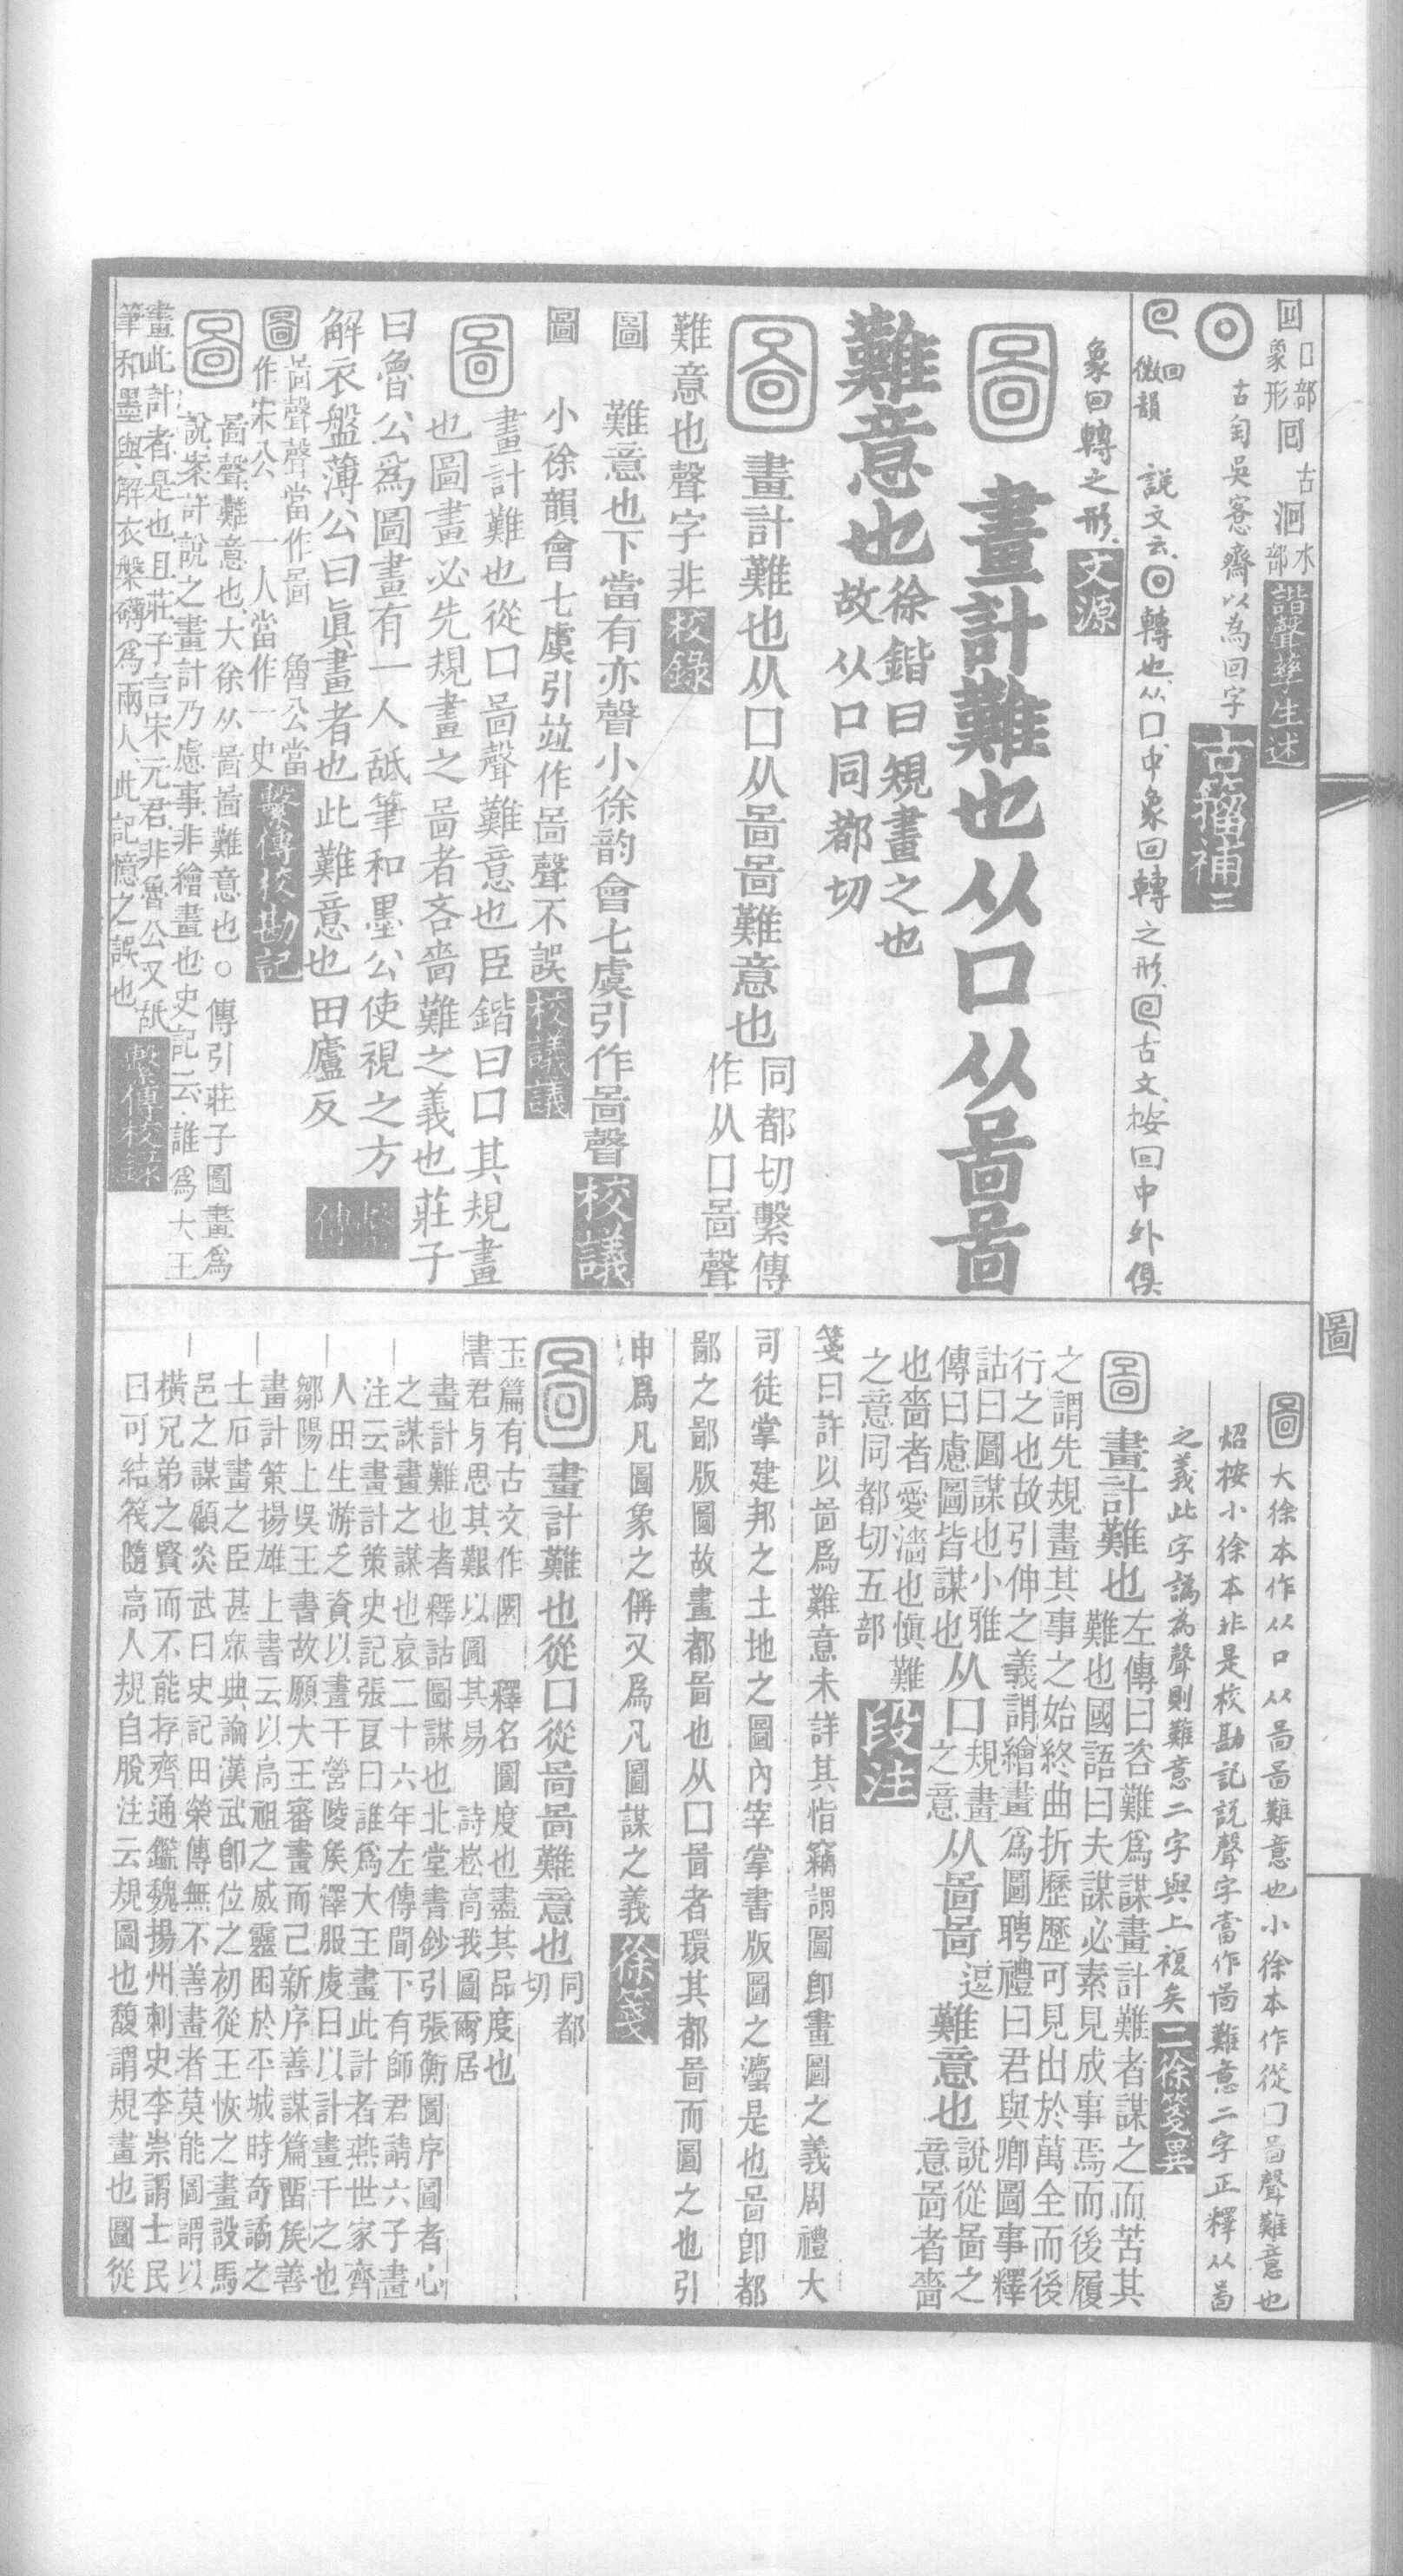 回 囗部 象形 囘 古 洄 水部 諧聲孳生述
古匋吳愙齋以為回字 古籀補三
回 微韻 説文云回轉也从囗中象回轉之形古文按回中外俱
象回轉之形 文源
圖 畫計難也从囗从啚啚
難意也 徐鍇曰規畫之也
故从囗同都切
圖 畫計難也从囗从啚啚難意也 同都切繫傳
作从囗啚聲
難意也聲字非 校錄
圖 難意也下當有亦聲小徐韵會七虞引作啚聲 校議
圖 小徐韻會七虞引竝作啚聲不誤 校議議
圖 畫計難也從囗啚聲難意也臣鍇曰囗其規畫
也圖畫必先規畫之啚者吝嗇難之義也莊子
曰魯公爲圖畫有一人舐筆和墨公使視之方
解衣盤薄公曰眞畫者也此難意也田廬反
圖 啚聲聲當作啚 魯公當
作宋公 一人當作一史 繫傳校勘記
圖 啚聲難意也大徐从啚啚難意也○傳引莊子圖畫爲
説案許説之畫計乃慮事非繪畫也史記云誰爲大王
畫此計者是也且莊子言宋元君非魯公又舐
筆和墨與解衣槃礴爲兩人此記憶之誤也 繫傳校錄
圖
圖 大徐本作从囗从啚啚難意也小徐本作從囗啚聲難意也
炤按小徐本非是校勘記説聲字當作啚難意二字正釋从啚
之義此字譌為聲則難意二字與上複矣 二徐箋異
圖 畫計難也 左傳曰咨難爲謀畫計難者謀之而苦其
難也國語曰夫謀必素見成事焉而後履
之謂先規畫其事之始終曲折歷歷可見出於萬全而後
行之也故引伸之義謂繪畫爲圖聘禮曰君與卿圖事釋
詁曰圖謀也小雅
傳曰慮圖皆謀也 从囗 規畫之意 从啚啚 逗 難意也 説從啚之
意啚者嗇
也嗇者愛濇也愼難
之意同都切五部 段注
箋曰許以啚爲難意未詳其恉竊謂圖卽畫圖之義周禮大
司徒掌建邦之土地之圖內宰掌書版圖之灋是也啚卽都
鄙之鄙版圖故畫都啚也从囗啚者環其都啚而圖之也引
申爲凡圖象之偁又爲凡圖謀之義 徐箋
圖 畫計難也從囗從啚啚難意也 同都
切
玉篇有古文作圕 釋名圖度也盡其品度也
書君奭思其艱以圖其易 詩崧高我圖爾居
畫計難也者釋詁圖謀也北堂書鈔引張衡圖序圖者心
之謀畫之謀也哀二十六年左傳聞下有師君請六子畫
注云畫計策史記張耳曰誰爲大王畫此計者燕世家齊
人田生游乏資以畫干營陵矦澤服虔曰以計畫干之也
鄒陽上吳王書故願大王審畫而己新序善謀篇畱矦善
畫計策揚雄上書云以高祖之威靈困於平城時奇譎之
士石畫之臣甚眾典論漢武卽位之初從王恢之畫設馬
邑之謀顧炎武曰史記田榮傳無不善畫者莫能圖謂以
橫兄弟之賢而不能存齊通鑑魏揚州刺史李崇謂士民
曰可結筏隨高人規自脫注云規圖也馥謂規畫也圖從